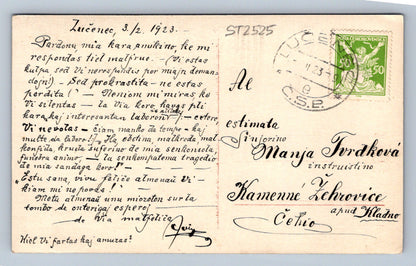 Lučenec, 3/2 1923.
Pardonu min kara amikino, ke mi
respondas tiel malfrue. (Vi estas
kulpa, ĉed Vi nerespondis por majn deman-
dojn!) — Sed prokrastita — ne estas
perdita! — Neniom mi miras ke
Vi silentas — la Via koro havas pli
kara kaj interesantan laboron! — cetere,
Vi nevolas — Ŝiam manko da tempo — kaj
multe da laboro!
konfuza kruda suferino de mia senkonsola
funebra animo; — tragedio
de mia sandaga koro! —
Estu sana, vivu feliĉe almenaŭ Vi —
kiam mi ne povka!
Metu almenaŭ unu mirozlon sur la
tombo de enterigaj esperoj
de Via malfeliĉa
Kiel Vi fartas kaj amuzas?
ST2525
LUČENEC
23
Č.S.P.
50 50
Al
estimata
Sinjorino
Manja Tvrdková
instruistino
Kamenné Žehrovice
apud Kladno
Ĉeĥio